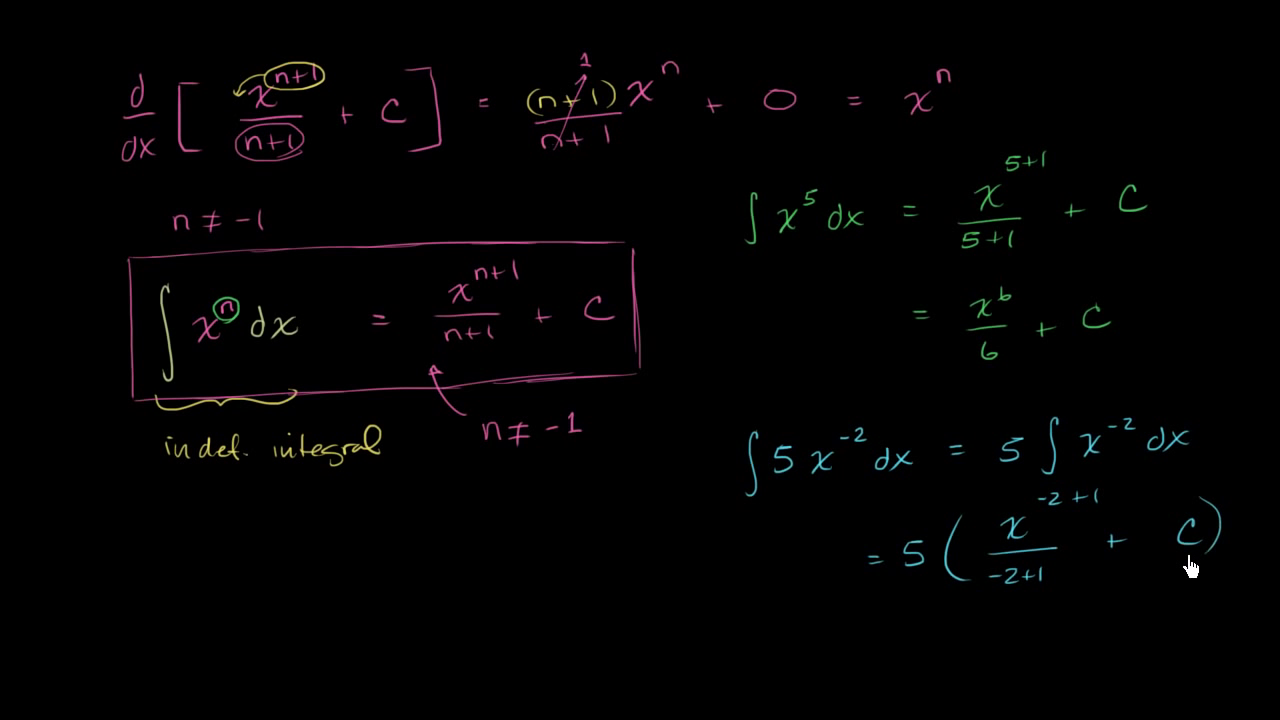 d/dx [ x^(n+1)/(n+1) + C ] = (n+1)x^n/(n+1) + 0 = x^n
1
n ≠ -1
∫ x^n dx = x^(n+1)/(n+1) + C
n ≠ -1
indef. integral
∫ x^5 dx = x^(5+1)/(5+1) + C
= x^6/6 + C
∫ 5 x^(-2) dx = 5 ∫ x^(-2) dx
= 5 ( x^(-2+1)/(-2+1) + C )